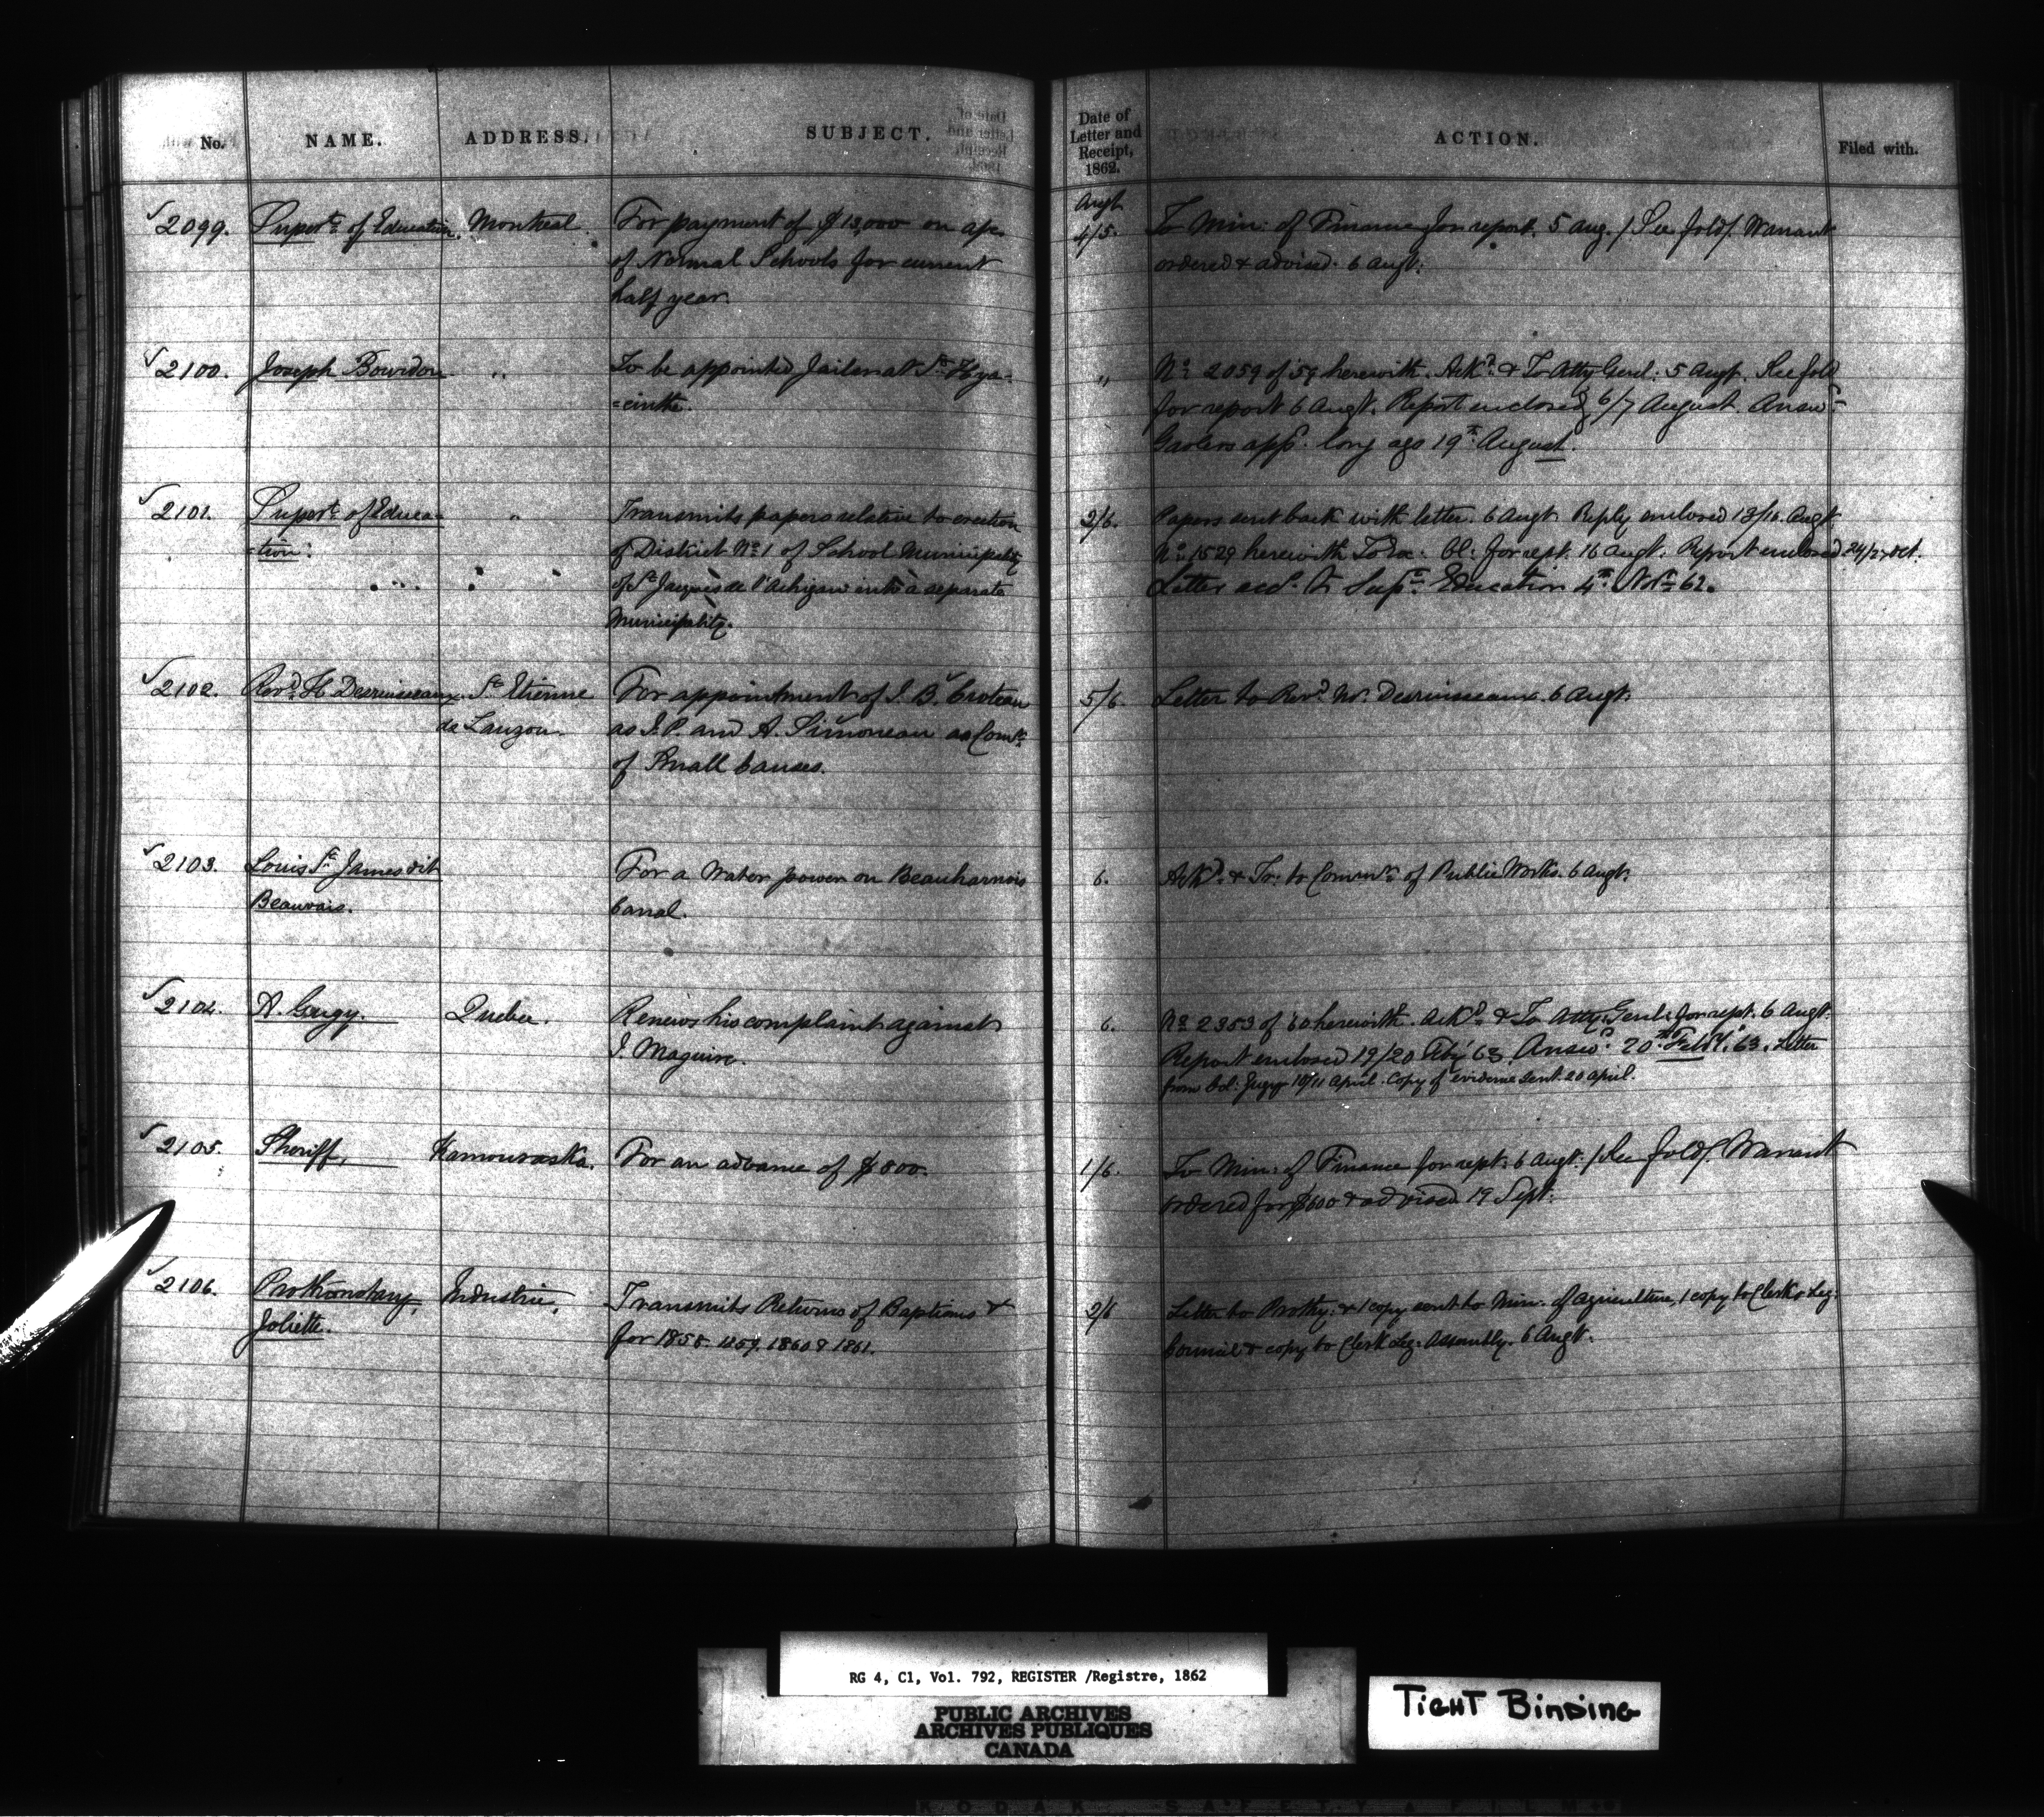 No. NAME. ADDRESS. SUBJECT. Date of Letter and Receipt, 1862. ACTION. Filed with.
Augt
2099. Supert. of Education. Montreal. For payment of $13,000 on a/c 4/5. To Min: of Finance for report. 5 aug. / See fold/. Warrant
of Normal Schools for current ordered & advised. 6 augt.
half year.
2100. Joseph Bowdon " To be appointed Jailer at St. Hya- " No. 2059 of 59 herewith. Ack'd. & To Atty Genl: 5 Augt. See fold
=cinthe. for report 6 Augt. Report enclosed 6/7 August. Answ'd
Gaolers app'd. long ago 19th August.
2101. Supert. of Educa- " Transmits papers relative to erection 2/6. Papers sent back with letter. 6 Augt. Reply enclosed 13/16. Augt
-tion. of District No. 1 of School Municipality No. 1529 herewith To Ex: Cl: for rept. 16 augt. Report enclosed 24/27 Oct.
of St. Jacques de l'Achigan into a separate Letter acc'd. to Sup't. Education 4th Nov. 62.
Municipality.
2102. Revd. H Desruisseaux. St. Etienne For appointment of J. B. Croteau 5/6. Letter to Revd. Mr. Desruisseaux. 6 Augt.
de Lauzon. as J. P. and A. Simoneau as Comr.
of Small Causes.
2103. Louis St. James dit For a Water power on Beauharnois 6. Ack'd. & Tr. to Commr. of Public Works. 6 Augt.
Beauvais. Canal.
2104. A. Gugy. Quebec. Renews his complaint against 6. No. 2353 of 60 herewith. Ack'd. & To Atty: Genl: for rept. 6 Augt.
J. Maguire. Report enclosed 19/20 Feby 63. Answ'd. 20th Feby. 63. Letter
from Col: Gugy 10/11 April. Copy of evidence sent 20 april.
2105. Sheriff, Kamouraska. For an advance of $800. 1/6. To Min: of Finance for rept: 6 Augt. / See fold/. Warrant
ordered for $600 & advised 19 Sept.
2106. Prothonotary, Industrie, Transmits Returns of Baptisms & 2/6 Letter to Prothy: & 1 copy sent to Min: of Agriculture, 1 copy to Clerk Leg:
Joliette. for 1858. 1859. 1860 & 1861. Council & copy to Clerk Leg: Assembly. 6 Augt.
RG 4, C1, Vol. 792, REGISTER /Registre, 1862
PUBLIC ARCHIVES
ARCHIVES PUBLIQUES
CANADA
TIGHT BINDING
KODAK SAFETY FILM